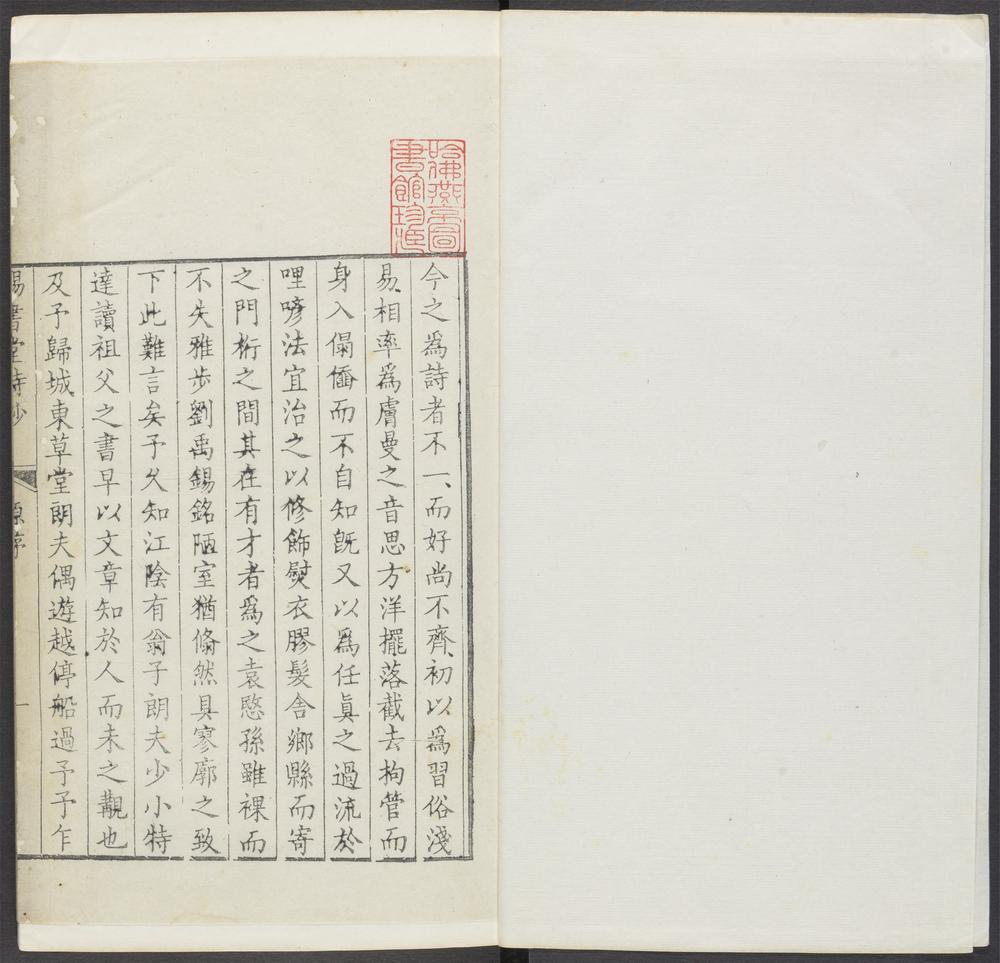 哈佛燕京圖
書館珍藏
今之爲詩者不一而好尚不齊初以爲習俗淺
易相率爲膚曼之音思方洋擺落截去拘管而
身入傝㒎而不自知旣又以爲任眞之過流於
哩嗙法宜治之以修飾熨衣膠髮舍鄉縣而寄
之門桁之間其在有才者爲之袁愍孫雖裸而
不失雅步劉禹錫銘陋室猶翛然具寥廓之致
下此難言矣予久知江陰有翁子朗夫少小特
達讀祖父之書早以文章知於人而未之觏也
及予歸城東草堂朗夫偶遊越停船過予予乍
賜書堂詩鈔 原序 一